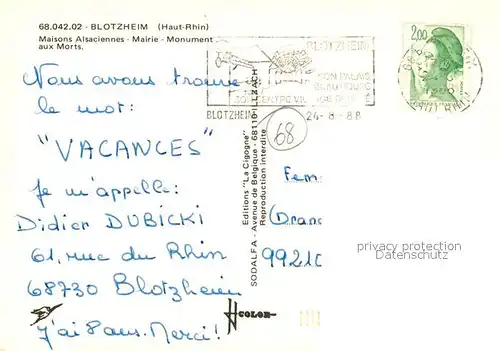 68.042.02 - BLOTZHEIM (Haut-Rhin)
Maisons Alsaciennes - Mairie - Monument
aux Morts.
BLOTZHEIM
SON PALAIS
BEAUBOURG
BLOTZHEIM
24-8-88
2,00
Nous avons trouvé
le mot:
"VACANCES"
Je m'appelle:
Didier DUBICKI
61, rue du Rhin
68730 Blotzheim
J'ai 8 ans. Merci!
68
Editions "La Cigogne"
SODALFA - Avenue de Belgique - 68110 ILLZACH
Reproduction interdite
COLOR
Fem
Dran
9921
privacy protection
Datenschutz